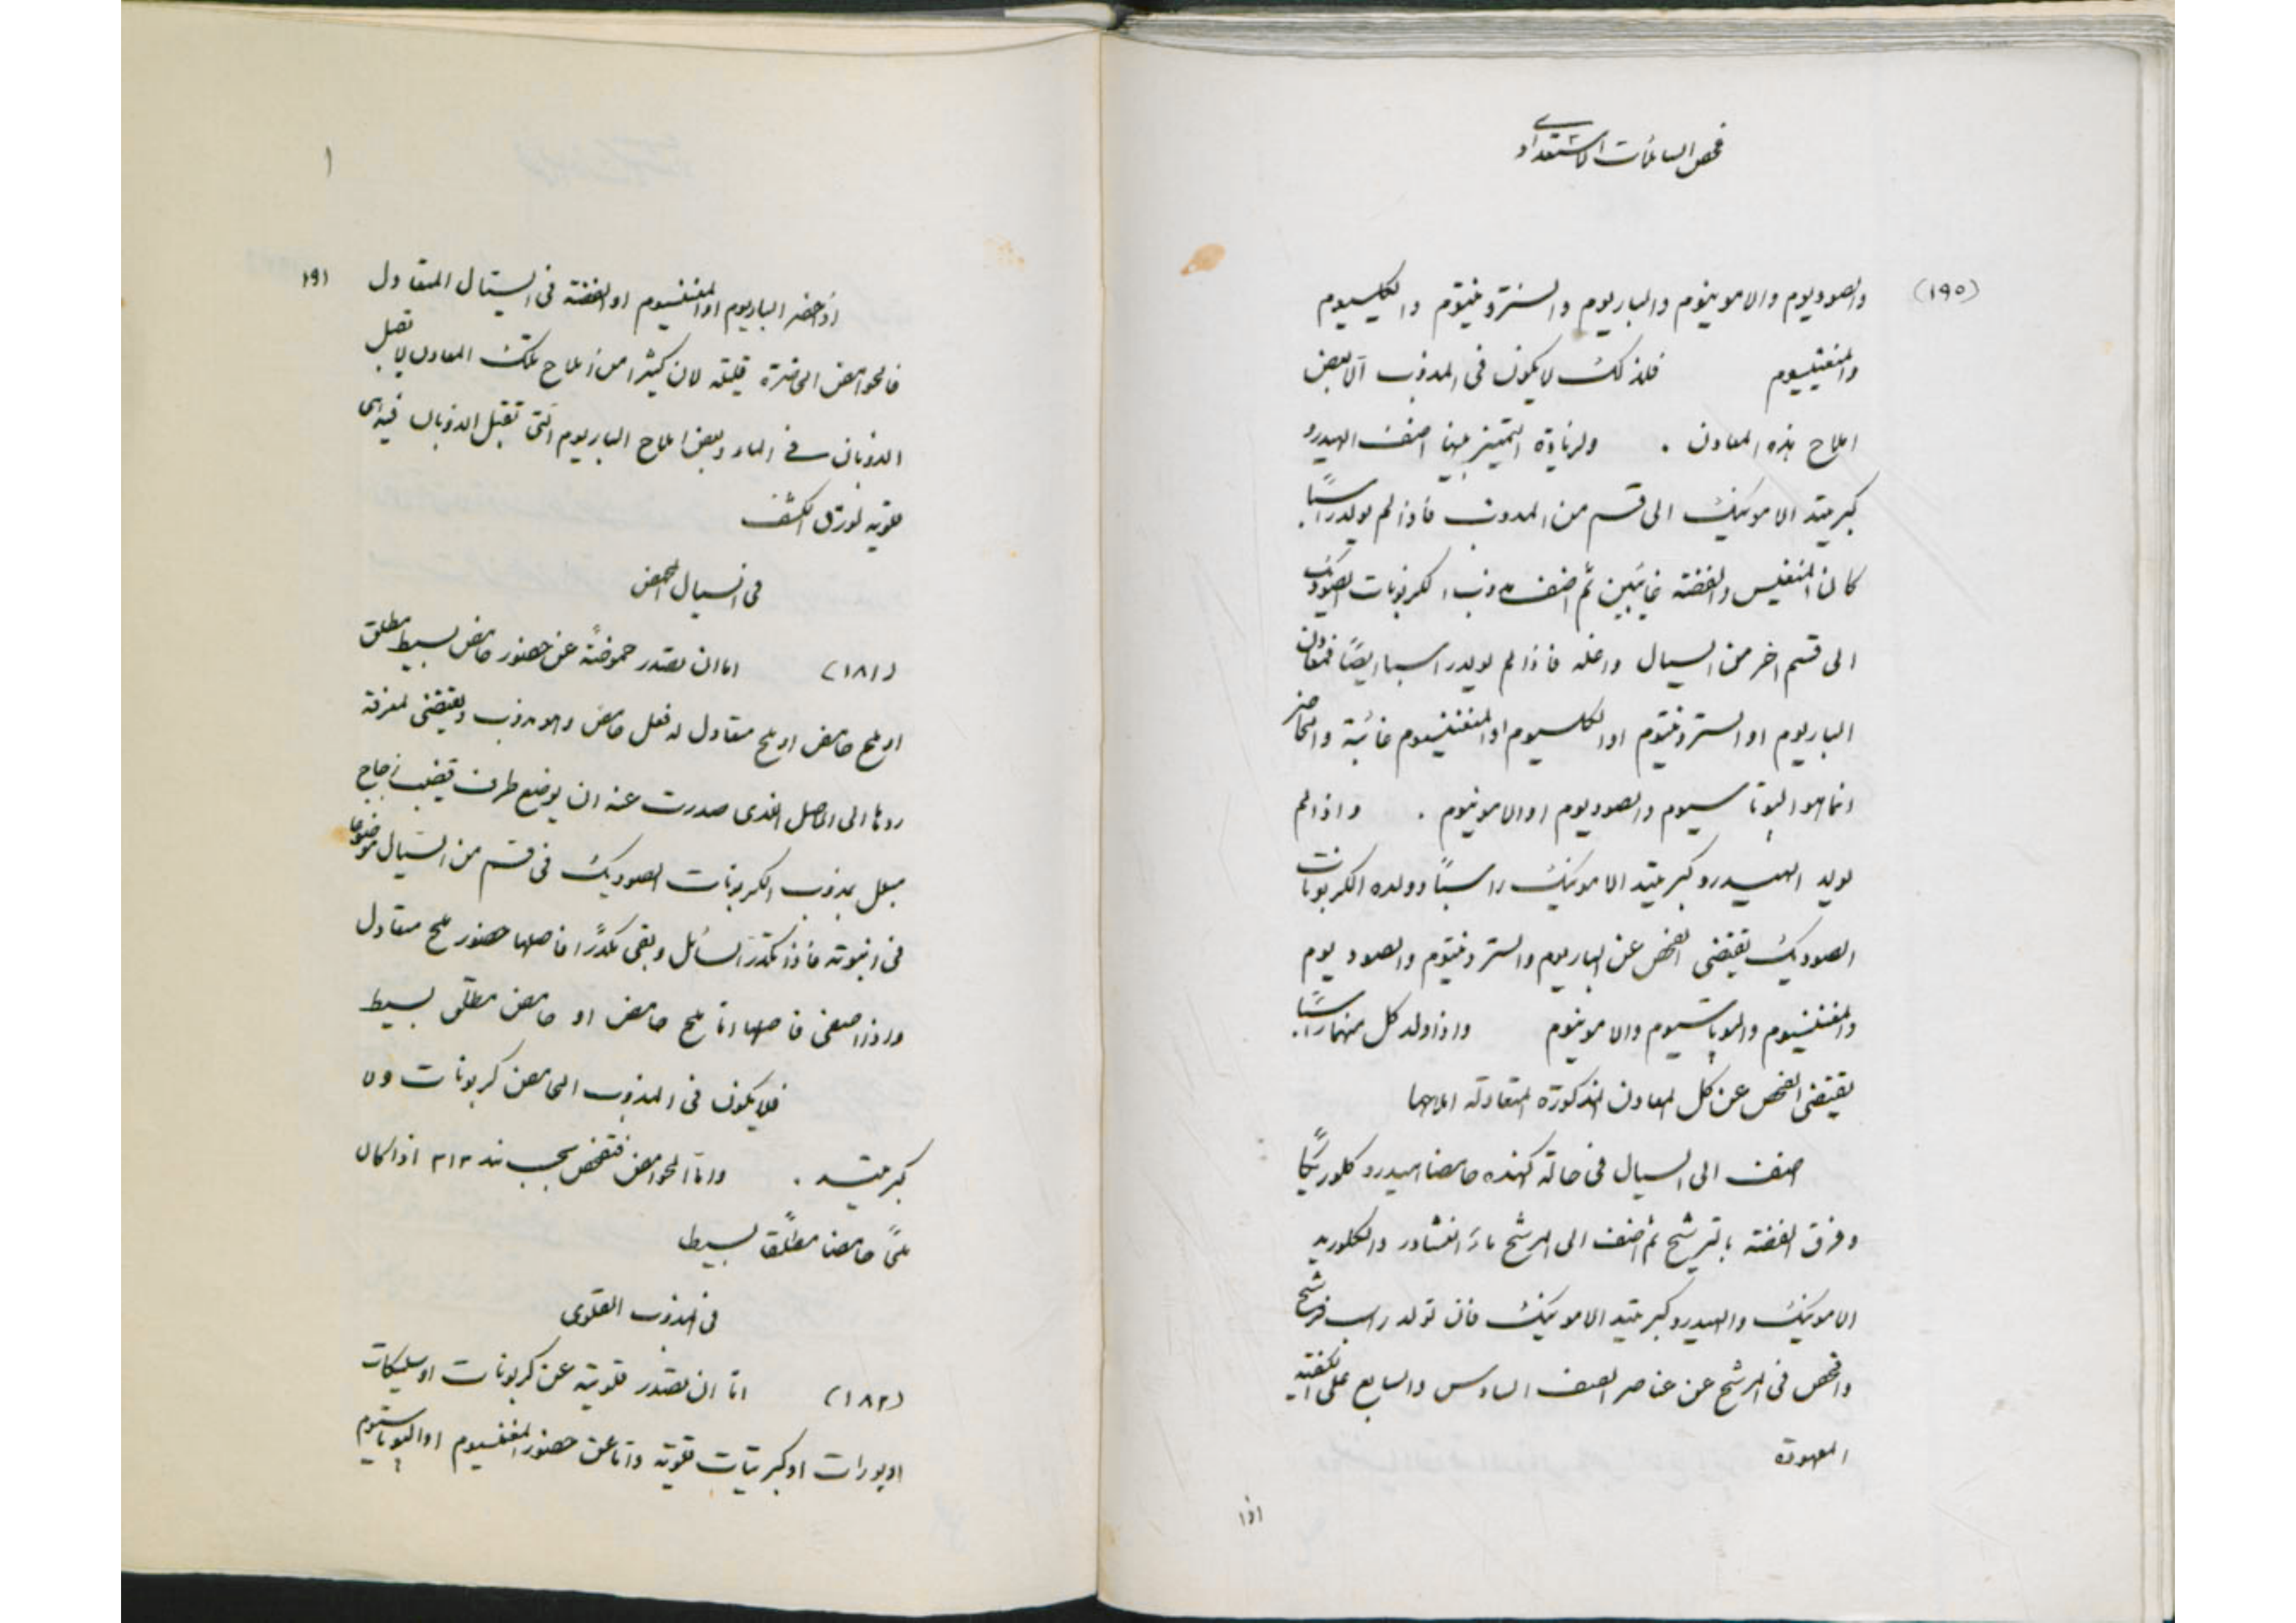 فحص السائلات الاستعدادى
(١٩٥)
والصوديوم والامونيوم والباريوم والسترونتيوم والكلسيوم
والمغنيسيوم فلذلك لا يكون فى المذوب الا بعض
املاح هذه المعادن . ولزيادة التمييز بينها اضف الهيدرو
كبريتيد الامونيك الى قسم من المذوب فاذا لم يولد راسبًا
كان المنغنيس والفضة غائبين ثم اضف مذوب الكربونات الصوديك
الى قسم اخر من السيال واغله فاذا لم يولد راسبا ايضًا فمعادن
الباريوم او السترونتيوم او الكلسيوم او المغنيسيوم غائبة والحاضر
انما هو البوتاسيوم والصوديوم او الامونيوم . واذا لم
يولد الهيدروكبريتيد الامونيك راسبًا وولده الكربونات
الصوديك يقتضى الفحص عن الباريوم والسترونتيوم والصوديوم
والمغنيسيوم والبوتاسيوم والامونيوم واذا ولد كل منهما راسبًا
يقتضى الفحص عن كل المعادن المذكورة المتعادلة املاحها
اضف الى السيال فى حالة كهذه حامضا هيدروكلوريكًا
وفرق الفضة بالترشيح ثم اضف الى المرشح ماء النشادر والكلوريد
الامونيك والهيدروكبريتيد الامونيك فان تولد راسب فرشح
وافحص فى المرشح عن عناصر الصف السادس والسابع على الكيفية
المعهودة
اذا
١٩١
اذا حضر الباريوم او المغنيسيوم او الفضة فى السيال المتعادل
فالحوامض الحاضرة قليلة لان كثيرا من املاح تلك المعادن لا تقبل
الذوبان فى الماء وبعض املاح الباريوم التى تقبل الذوبان فيه هى
قلوية لورق الكشف
فى السيال الحمض
(١٨١) اما ان تصدر حموضته عن حضور حامض بسيط مطلق
او ملح حامض او ملح متعادل له فعل حامض وهو مذوب ويقتضى لمعرفة
ردها الى الاصل الذى صدرت عنه ان يوضع طرف قضيب زجاج
مبلل بمذوب الكربونات الصوديك فى قسم من السيال موضوعا
فى انبوبة فاذا تكدّر السائل وبقى مكدّرًا فاصلها حضور ملح متعادل
واذا صفى فاصلها امّا ملح حامض او حامض مطلق بسيط
فلا يكون فى المذوب الحامض كربونات ولا
كبريتيد . وامّا الحوامض فتفحص بحسب بند ٣١٣ اذا كان
ملحًا حامضا مطلقًا بسيط
فى المذوب القلوى
(١٨٢) امّا ان تصدر قلويته عن كربونات او سليكات
او بورات او كبريتات قلوية وامّا عن حضور المغنيسيوم او البوتاسيوم